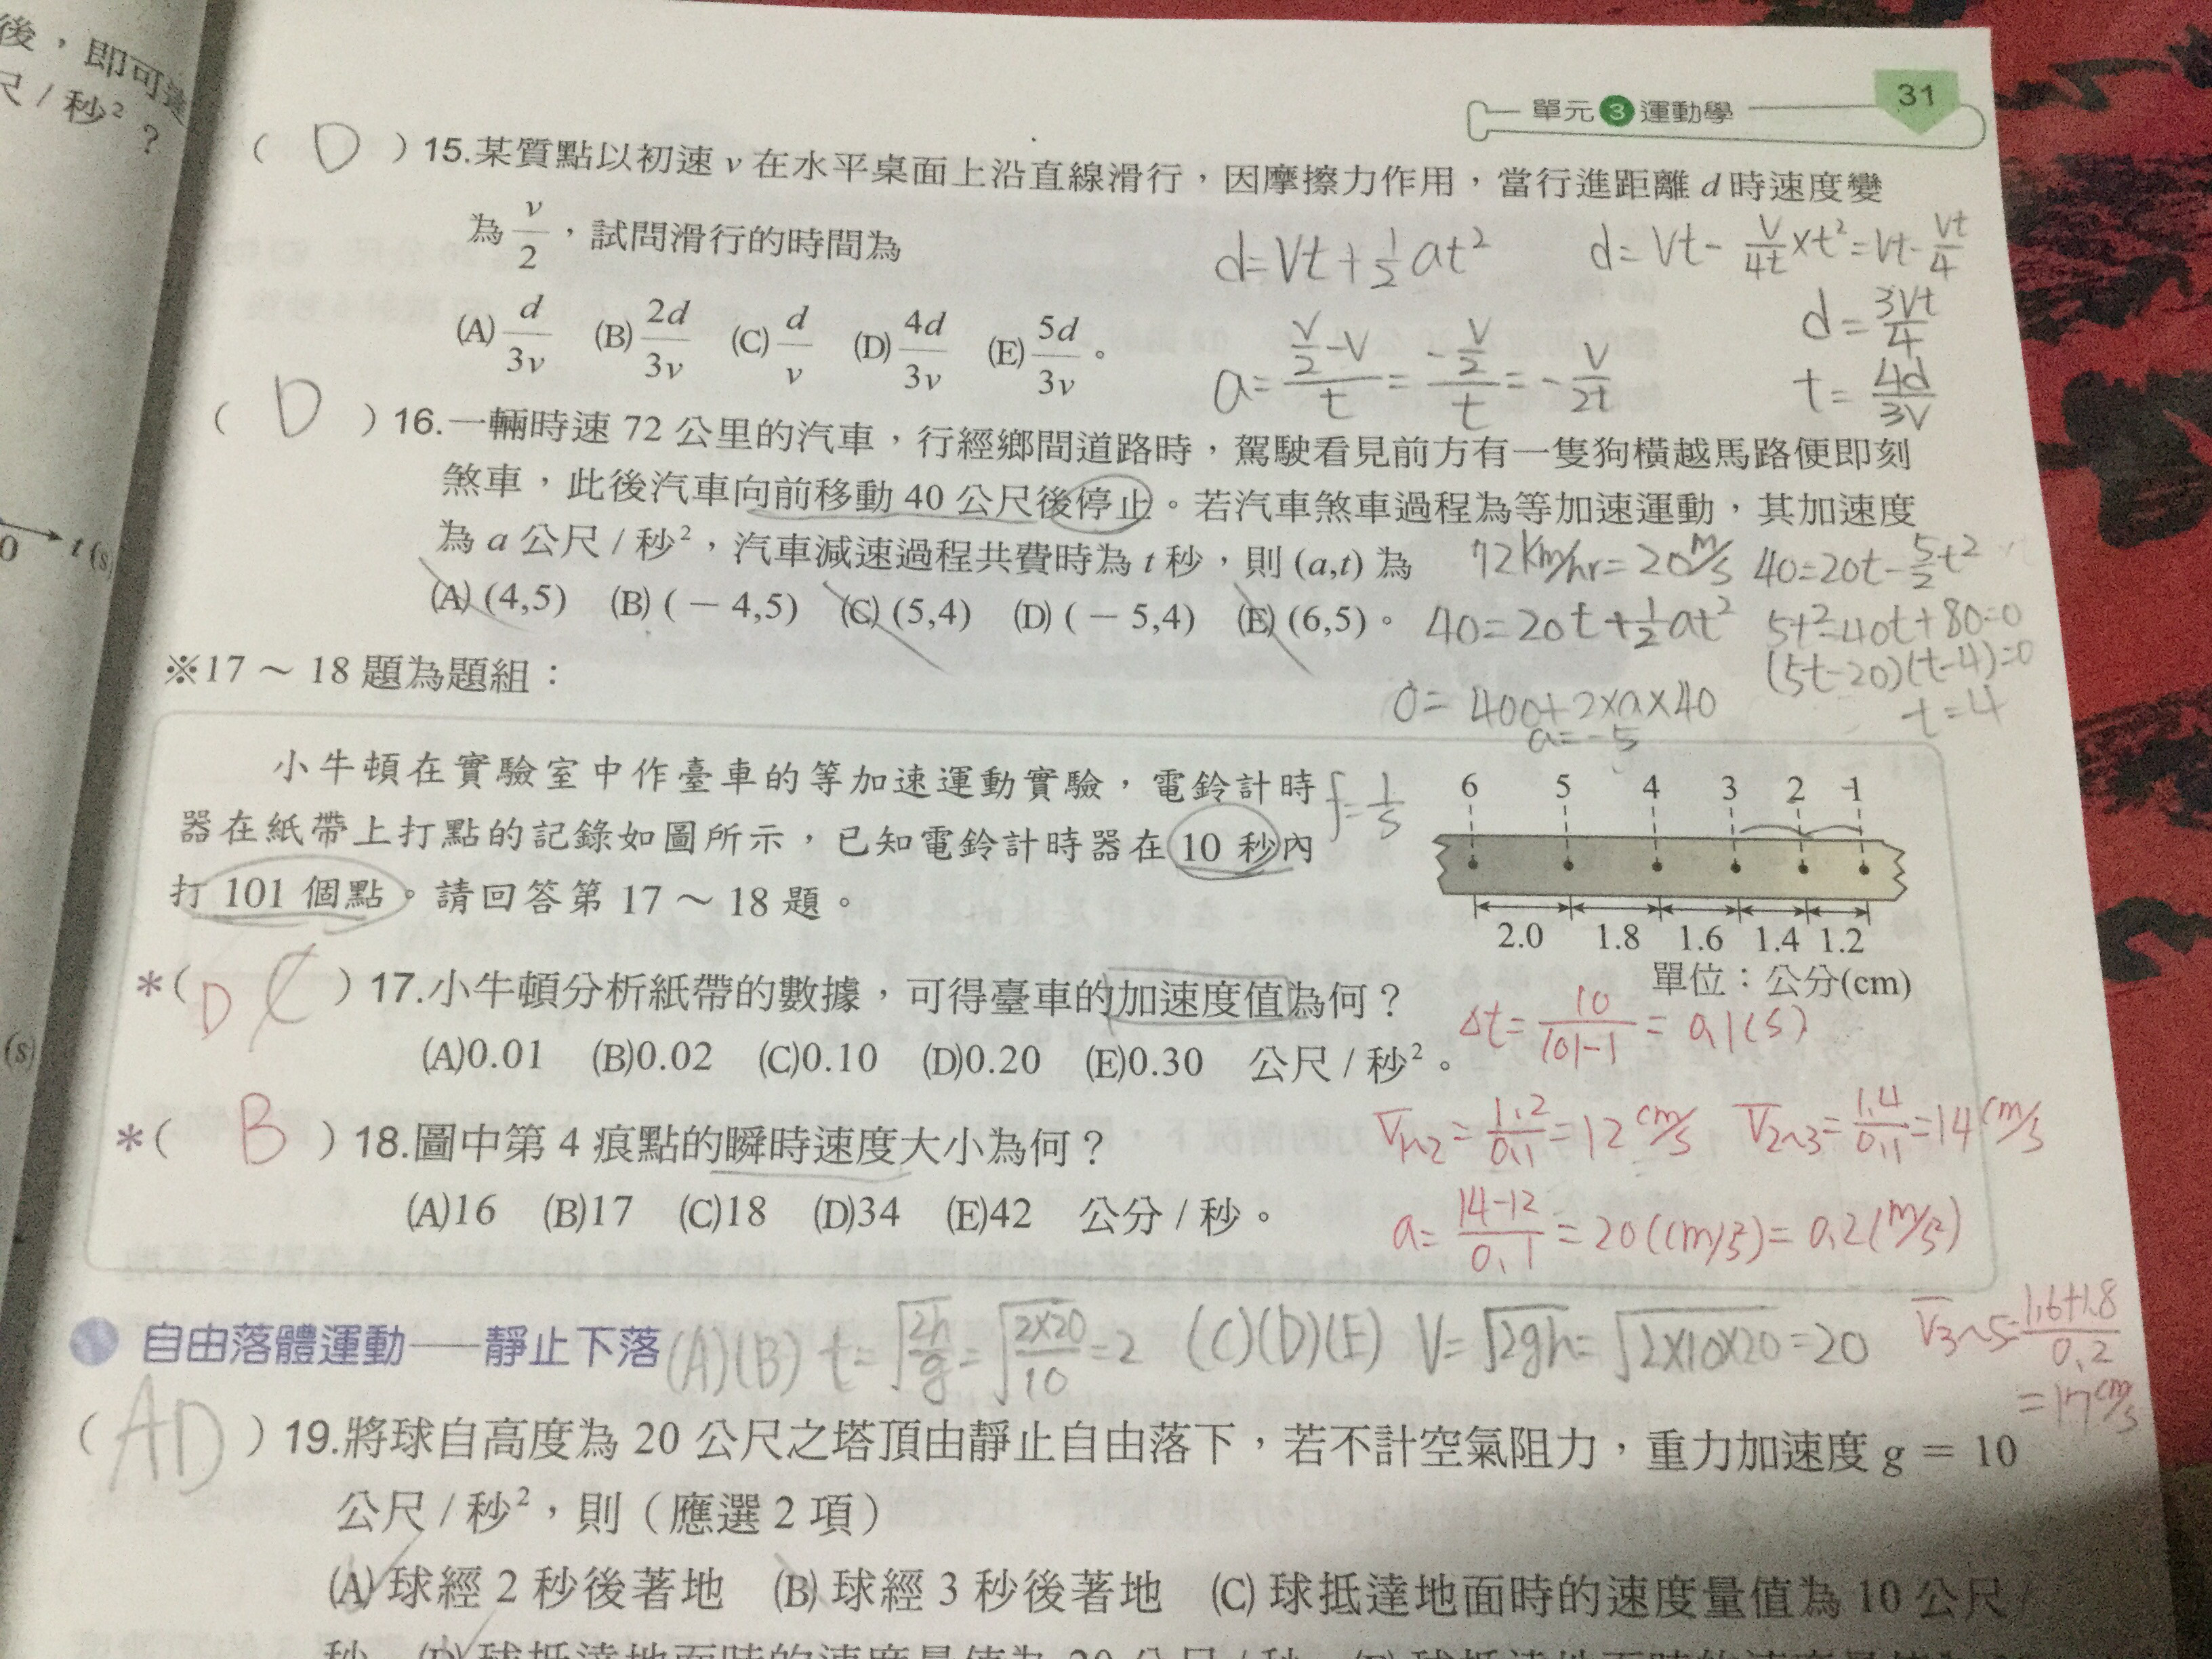 後，即可達
尺/秒²？
單元3運動學 31
( D ) 15.某質點以初速 v 在水平桌面上沿直線滑行，因摩擦力作用，當行進距離 d 時速度變
為 v/2，試問滑行的時間為
d=Vt+1/2at² d=Vt-V/4t×t²=Vt-Vt/4
(A) d/3v (B) 2d/3v (C) d/v (D) 4d/3v (E) 5d/3v。
d=3Vt/4
a=(V/2-V)/t=(-V/2)/t=-V/2t t=4d/3V
( D ) 16.一輛時速 72 公里的汽車，行經鄉間道路時，駕駛看見前方有一隻狗橫越馬路便即刻
煞車，此後汽車向前移動 40 公尺後停止。若汽車煞車過程為等加速運動，其加速度
為 a 公尺/秒²，汽車減速過程共費時為 t 秒，則 (a,t) 為
72km/hr=20m/s 40=20t-5/2t²
(A) (4,5) (B) (－4,5) (C) (5,4) (D) (－5,4) (E) (6,5)。
40=20t+1/2at² 5t²-40t+80=0
(5t-20)(t-4)=0
0=400+2×a×40 t=4
a=-5
t(s)
0
※17～18 題為題組：
小牛頓在實驗室中作臺車的等加速運動實驗，電鈴計時
器在紙帶上打點的記錄如圖所示，已知電鈴計時器在 10 秒內
打 101 個點。請回答第 17～18 題。
f=1/5
6 5 4 3 2 1
2.0 1.8 1.6 1.4 1.2
單位：公分(cm)
*( D C ) 17.小牛頓分析紙帶的數據，可得臺車的加速度值為何？
Δt=10/(101-1)=0.1(s)
(A)0.01 (B)0.02 (C)0.10 (D)0.20 (E)0.30 公尺/秒²。
V1~2=1.2/0.1=12cm/s V2~3=1.4/0.1=14cm/s
*( B ) 18.圖中第 4 痕點的瞬時速度大小為何？
(A)16 (B)17 (C)18 (D)34 (E)42 公分/秒。
a=(14-12)/0.1=20(cm/s²)=0.2(m/s²)
(s)
V3~5=(1.6+1.8)/0.2
=17cm/s
自由落體運動──靜止下落
(A)(B) t=√(2h/g)=√(2×20/10)=2 (C)(D)(E) V=√2gh=√2×10×20=20
( AD ) 19.將球自高度為 20 公尺之塔頂由靜止自由落下，若不計空氣阻力，重力加速度 g = 10
公尺/秒²，則（應選 2 項）
(A) 球經 2 秒後著地 (B) 球經 3 秒後著地 (C) 球抵達地面時的速度量值為 10 公尺
秒 (D) 球抵達地面時的速度量值為 20 公尺/秒 (E) 球抵達地面時的速度量值為